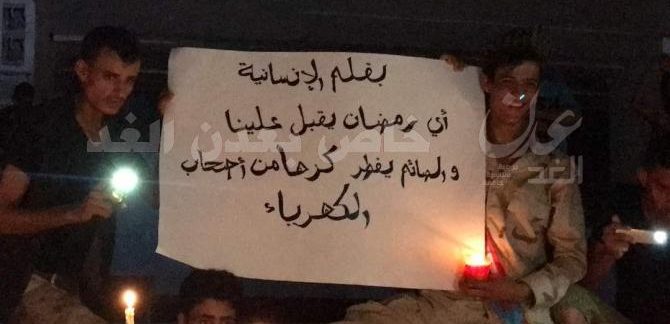 بقلم الإنسانية
أي رمضان يقبل علينا
والصائم يفطر كرها من أصحاب
الكهرباء
خاص بعدن الغد
عدن
الغد